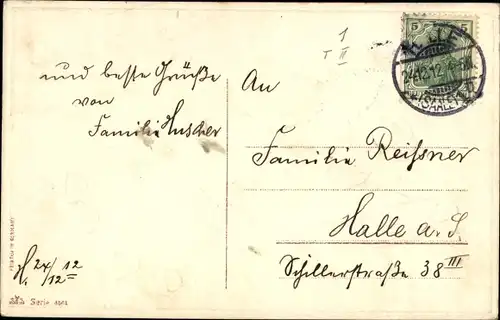 1
T II
5 5
HALLE
24.12.12.
*(SAALE)*
und beste Grüße
von
Familie Huscher
An
Familie Reißner
Halle a. S.
Schillerstraße 38 III
H. 24/12 12
Serie